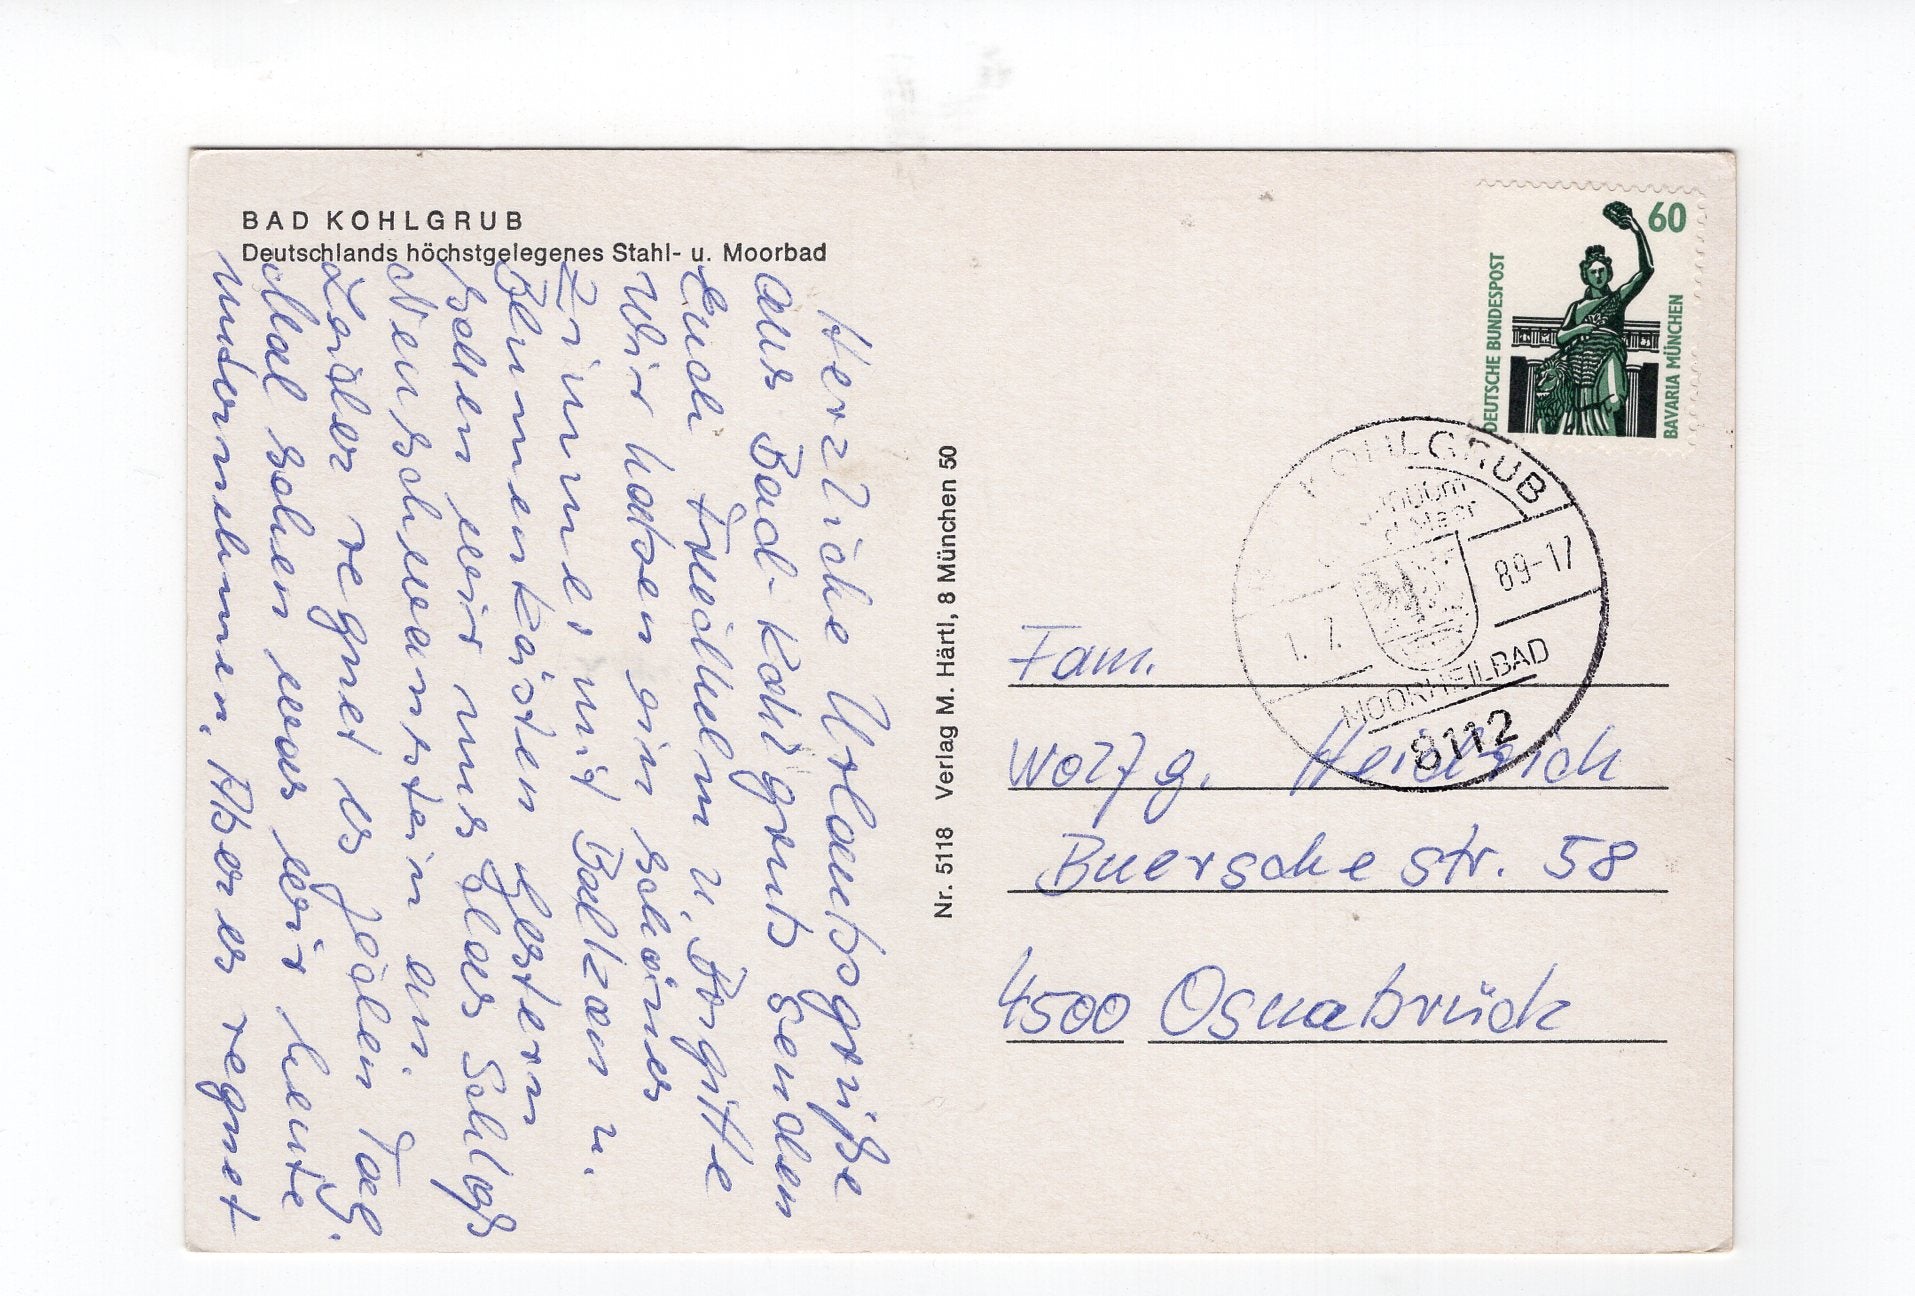 BAD KOHLGRUB
Deutschlands höchstgelegenes Stahl- u. Moorbad
Herzliche Urlaubsgrüße
aus Bad-Kohlgrub senden
Euch Friedhelm u. Birgitte
Wir haben ein schönes
Zimmer mit Balkon u.
Blumenkästen gestern
haben wir uns das Schloß
Neuschwanstein an.
Leider regnet es jeden Tag.
Mal sehen was wir heute
unternehmen. Aber es regnet
Nr. 5118 Verlag M. Härtl, 8 München 50
60
DEUTSCHE BUNDESPOST
BAVARIA MÜNCHEN
KOHLGRUB
1. 7.
89-17
MOORHEILBAD
8112
Fam.
Wolfg. Heidrich
Buersche Str. 58
4500 Osnabrück